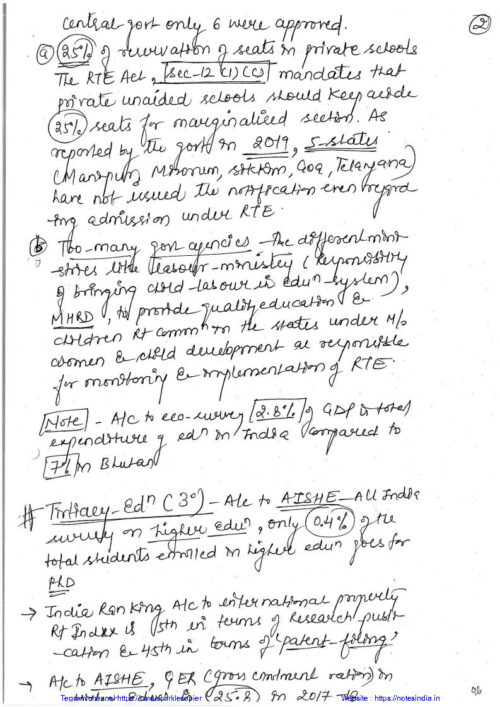 central govt only 6 were approved.
2
a 25% of reservation of seats in private schools
The RTE Act, sec-12 (1) (c) mandates that
private unaided schools should keep aside
25% seats for marginalised section. As
reported by the govt in 2019, 5-states
(Manipur, Mizoram, sikkim, Goa, Telangana)
have not issued the notification even regard
-ing admission under RTE.
b Too-many govt agencies - The different mini
-stries like labour-ministry (responsibility
of bringing child-labour in edun system),
MHRD, to provide quality education &
children Rt commn in the states under M/o
women & child development are responsible
for monitoring & implementation of RTE.
Note - A/c to eco-survey 2.8% of GDP is total
expenditure of edn in India compared to
7% in Bhutan
# Tertiary-Edn (3°) - A/c to AISHE - All India
survey on higher edun, only 0.4% of the
total students enrolled in higher edun goes for
PhD
→ India Ranking A/c to international property
Rt Index is 5th in terms of Research publi
-cation & 45th in terms of 'patent-filing'
→ A/c to AISHE, GER (gross enrolment ration) in
25.8 in 2017
Website : https://notesindia.in
96